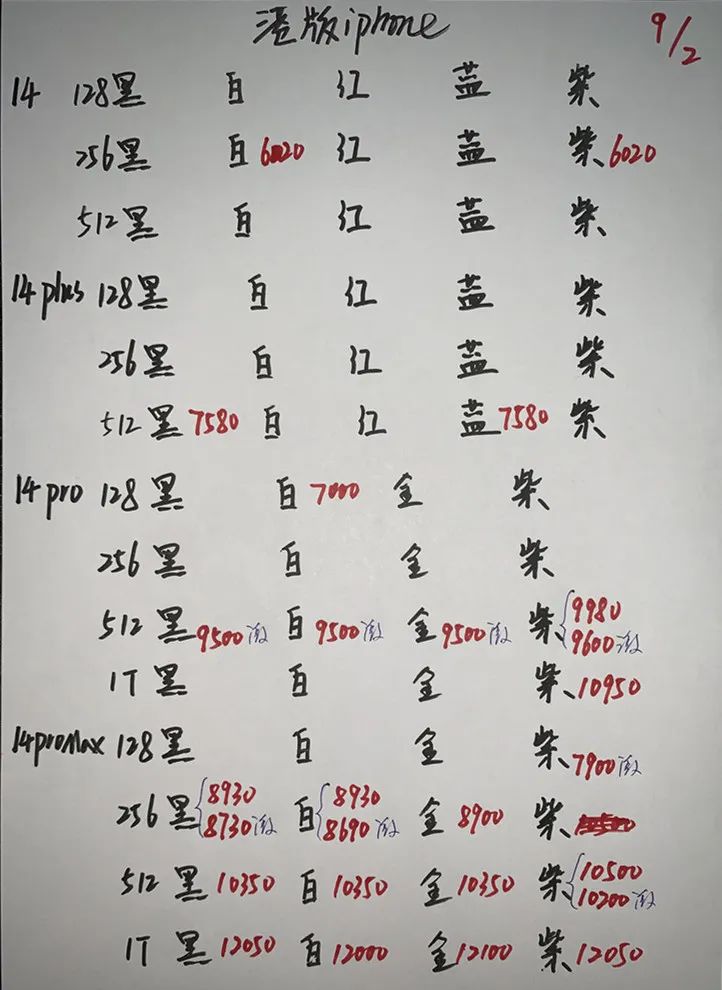 港版iphone 9/2
14 128黑 白 红 蓝 紫
256黑 白6020 红 蓝 紫6020
512黑 白 红 蓝 紫
14plus 128黑 白 红 蓝 紫
256黑 白 红 蓝 紫
512黑7580 白 红 蓝7580 紫
14pro 128黑 白7000 金 紫
256黑 白 金 紫
512黑9500激 白9500激 金9500激 紫{9980 9600激
1T黑 白 金 紫10950
14proMax 128黑 白 金 紫7900激
256黑{8930 8730激 白{8930 8690激 金8900 紫
512黑10350 白10350 金10350 紫{10500 10200激
1T黑12050 白12000 金12100 紫12050